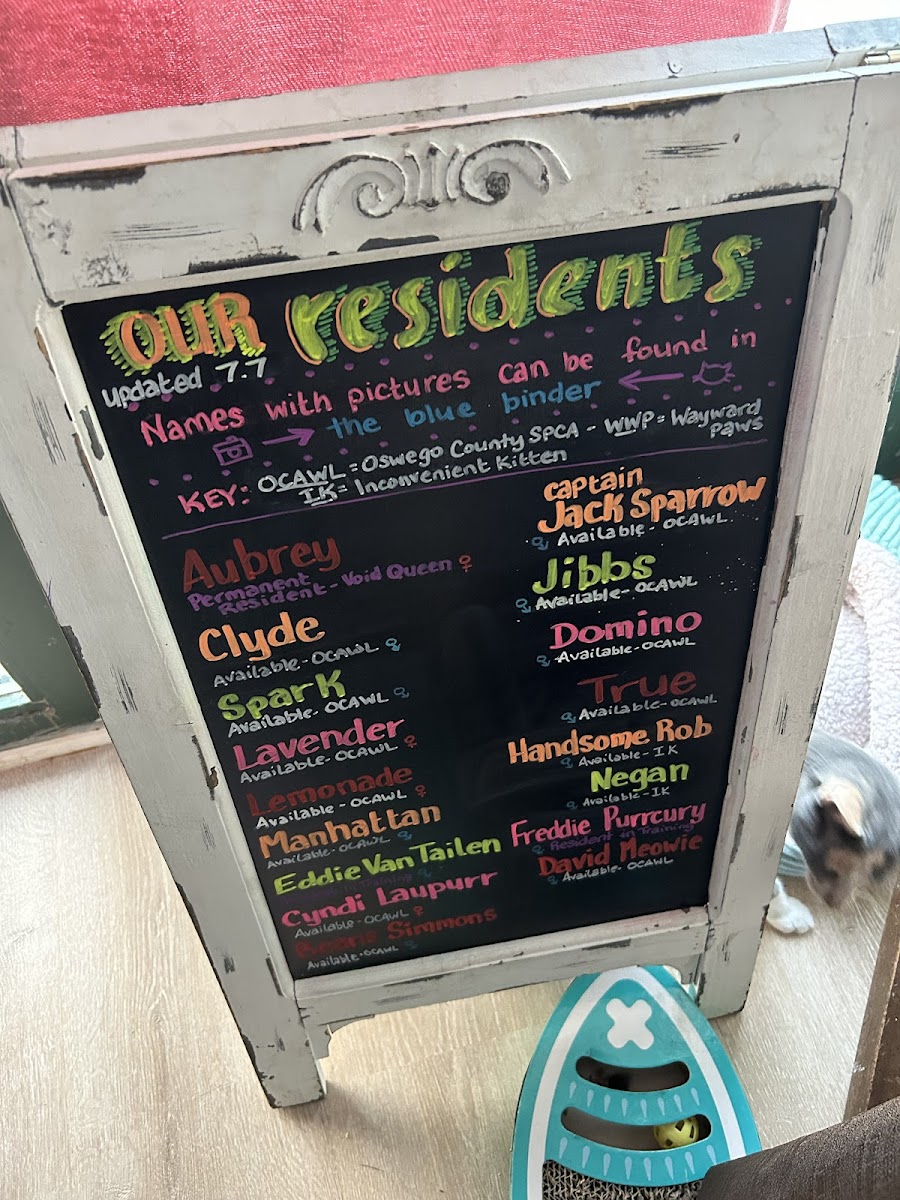 OUR residents
updated 7.7
Names with pictures can be found in
the blue binder
KEY: OCAWL = Oswego County SPCA - WWP = Wayward Paws
IK = Inconvenient Kitten
Aubrey
Permanent Resident - Void Queen ♀
Clyde
Available - OCAWL ♂
Spark
Available - OCAWL ♂
Lavender
Available - OCAWL ♀
Lemonade
Available - OCAWL ♀
Manhattan
Available - OCAWL ♂
Eddie Van Tailen
Cyndi Laupurr
Available - OCAWL ♀
Simmons
Available - OCAWL
captain
Jack Sparrow
♂ Available - OCAWL
Jibbs
♂ Available - OCAWL
Domino
♂ Available - OCAWL
True
♂ Available - OCAWL
Handsome Rob
♂ Available - IK
Negan
♂ Available - IK
Freddie Purrcury
♂ Resident in Training
David Meowie
♂ Available - OCAWL